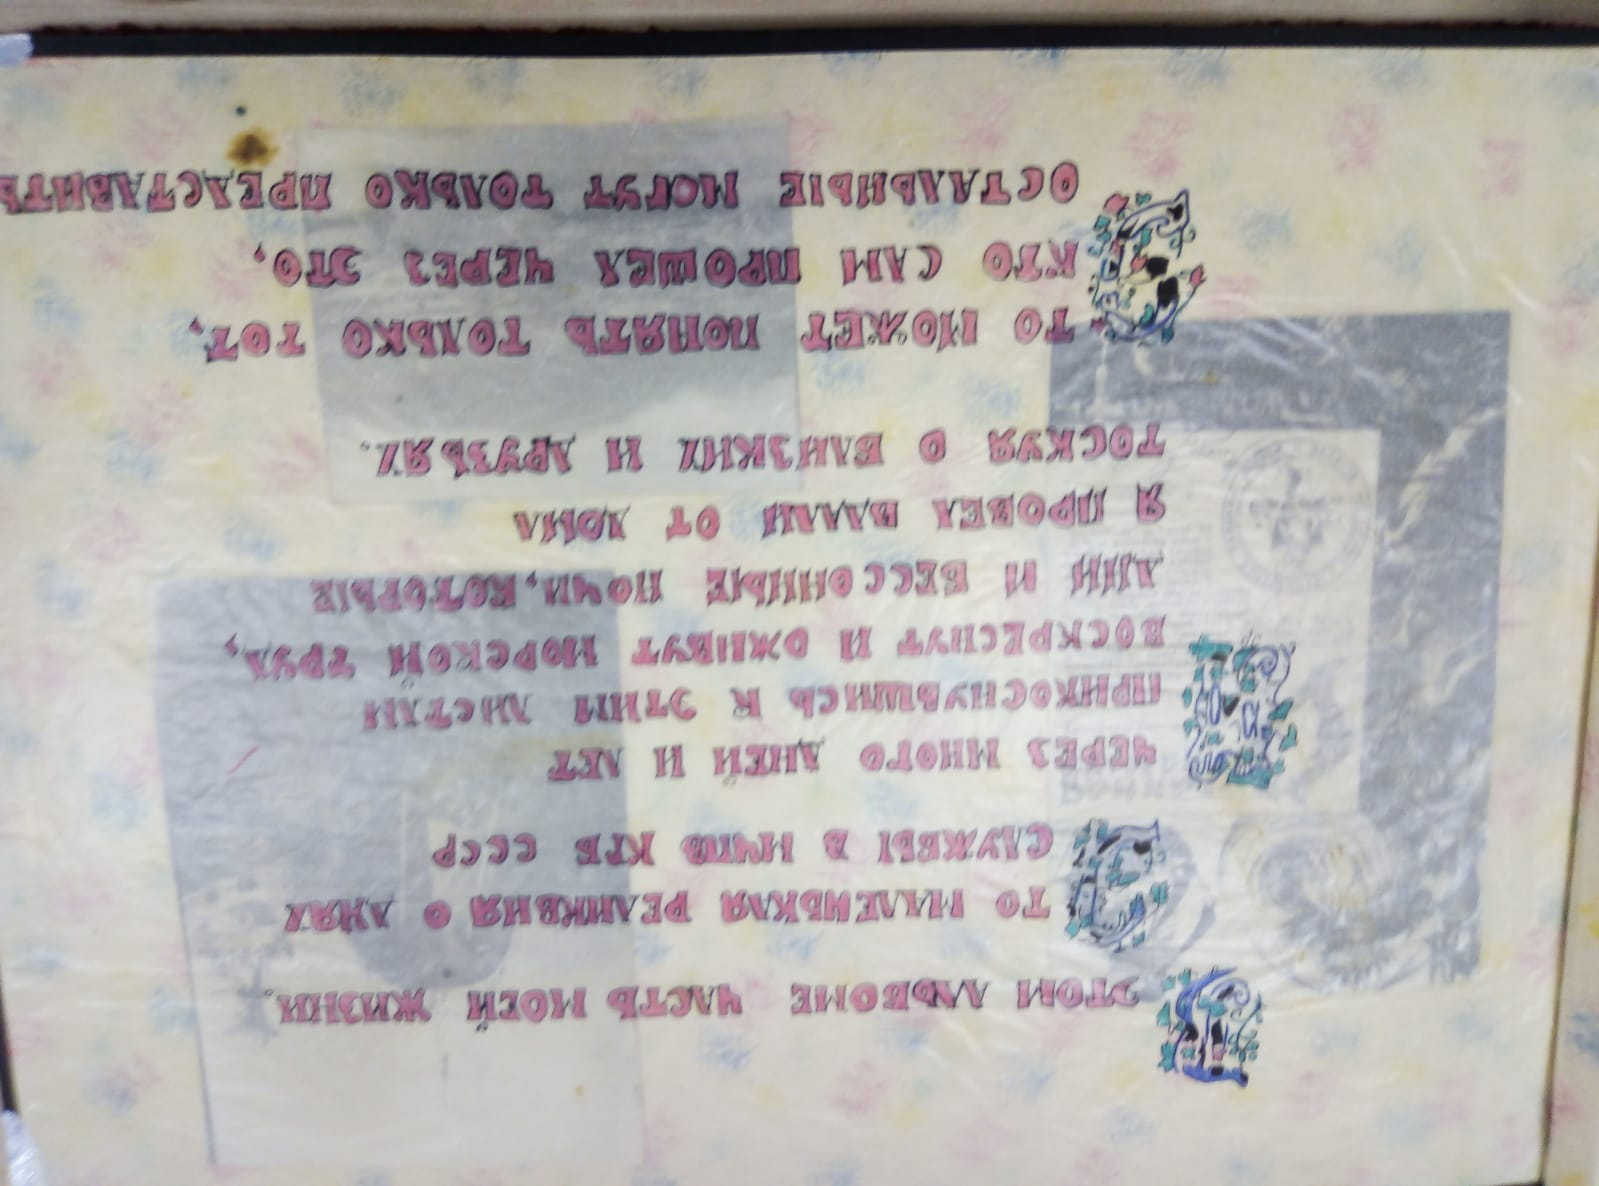 В ЭТОМ АЛЬБОМЕ ЧАСТЬ МОЕЙ ЖИЗНИ.
ЭТО МАЛЕНЬКАЯ РЕЛИКВИЯ О ДНЯХ
СЛУЖБЫ В МЧПВ КГБ СССР
ЧЕРЕЗ МНОГО ДНЕЙ И ЛЕТ
ПРИКОСНУВШИСЬ К ЭТИМ ЛИСТАМ
ВОСКРЕСНУТ И ОЖИВУТ МОРСКОЙ ТРУД,
ДНИ И БЕССОННЫЕ НОЧИ, КОТОРЫЕ
Я ПРОВЕЛ ВДАЛИ ОТ ДОМА
ТОСКУЯ О БЛИЗКИХ И ДРУЗЬЯХ.
ЭТО МОЖЕТ ПОНЯТЬ ТОЛЬКО ТОТ,
КТО САМ ПРОШЕЛ ЧЕРЕЗ ЭТО,
ОСТАЛЬНЫЕ МОГУТ ТОЛЬКО ПРЕДСТАВИТЬ